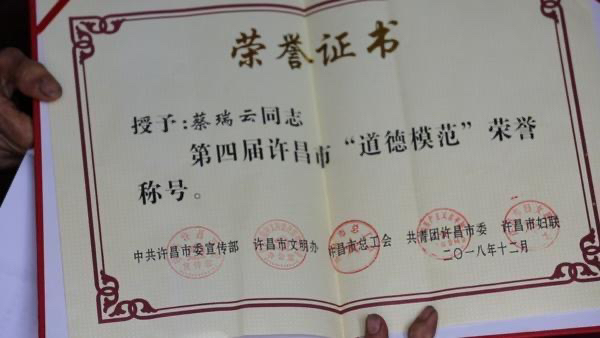 荣誉证书
授予：蔡瑞云同志
第四届许昌市“道德模范”荣誉
称号。
中共许昌市委宣传部 许昌市文明办 许昌市总工会 共青团许昌市委 许昌市妇联
二〇一八年十二月